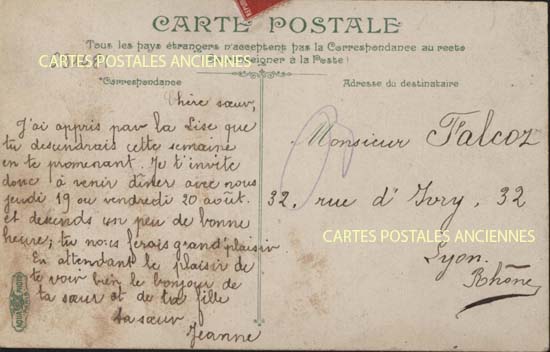 CARTE POSTALE
Tous les pays étrangers n'acceptent pas la Correspondance au recto
seigner à la Poste)
CARTES POSTALES ANCIENNES
*Correspondance
Adresse du destinataire
Chère sœur,
J'ai appris par la Lise que
tu descendrais cette semaine
en te promenant. Je t'invite
donc à venir dîner avec nous
jeudi 19 ou vendredi 20 août.
et descends un peu de bonne
heure; tu nous ferais grand plaisir
En attendant le plaisir de
te voir bien le bonjour de
ta sœur et de ta fille
ta sœur
Jeanne
Monsieur Falcoz
32, rue d'Ivry, 32
CARTES POSTALES ANCIENNES
Lyon.
Rhône